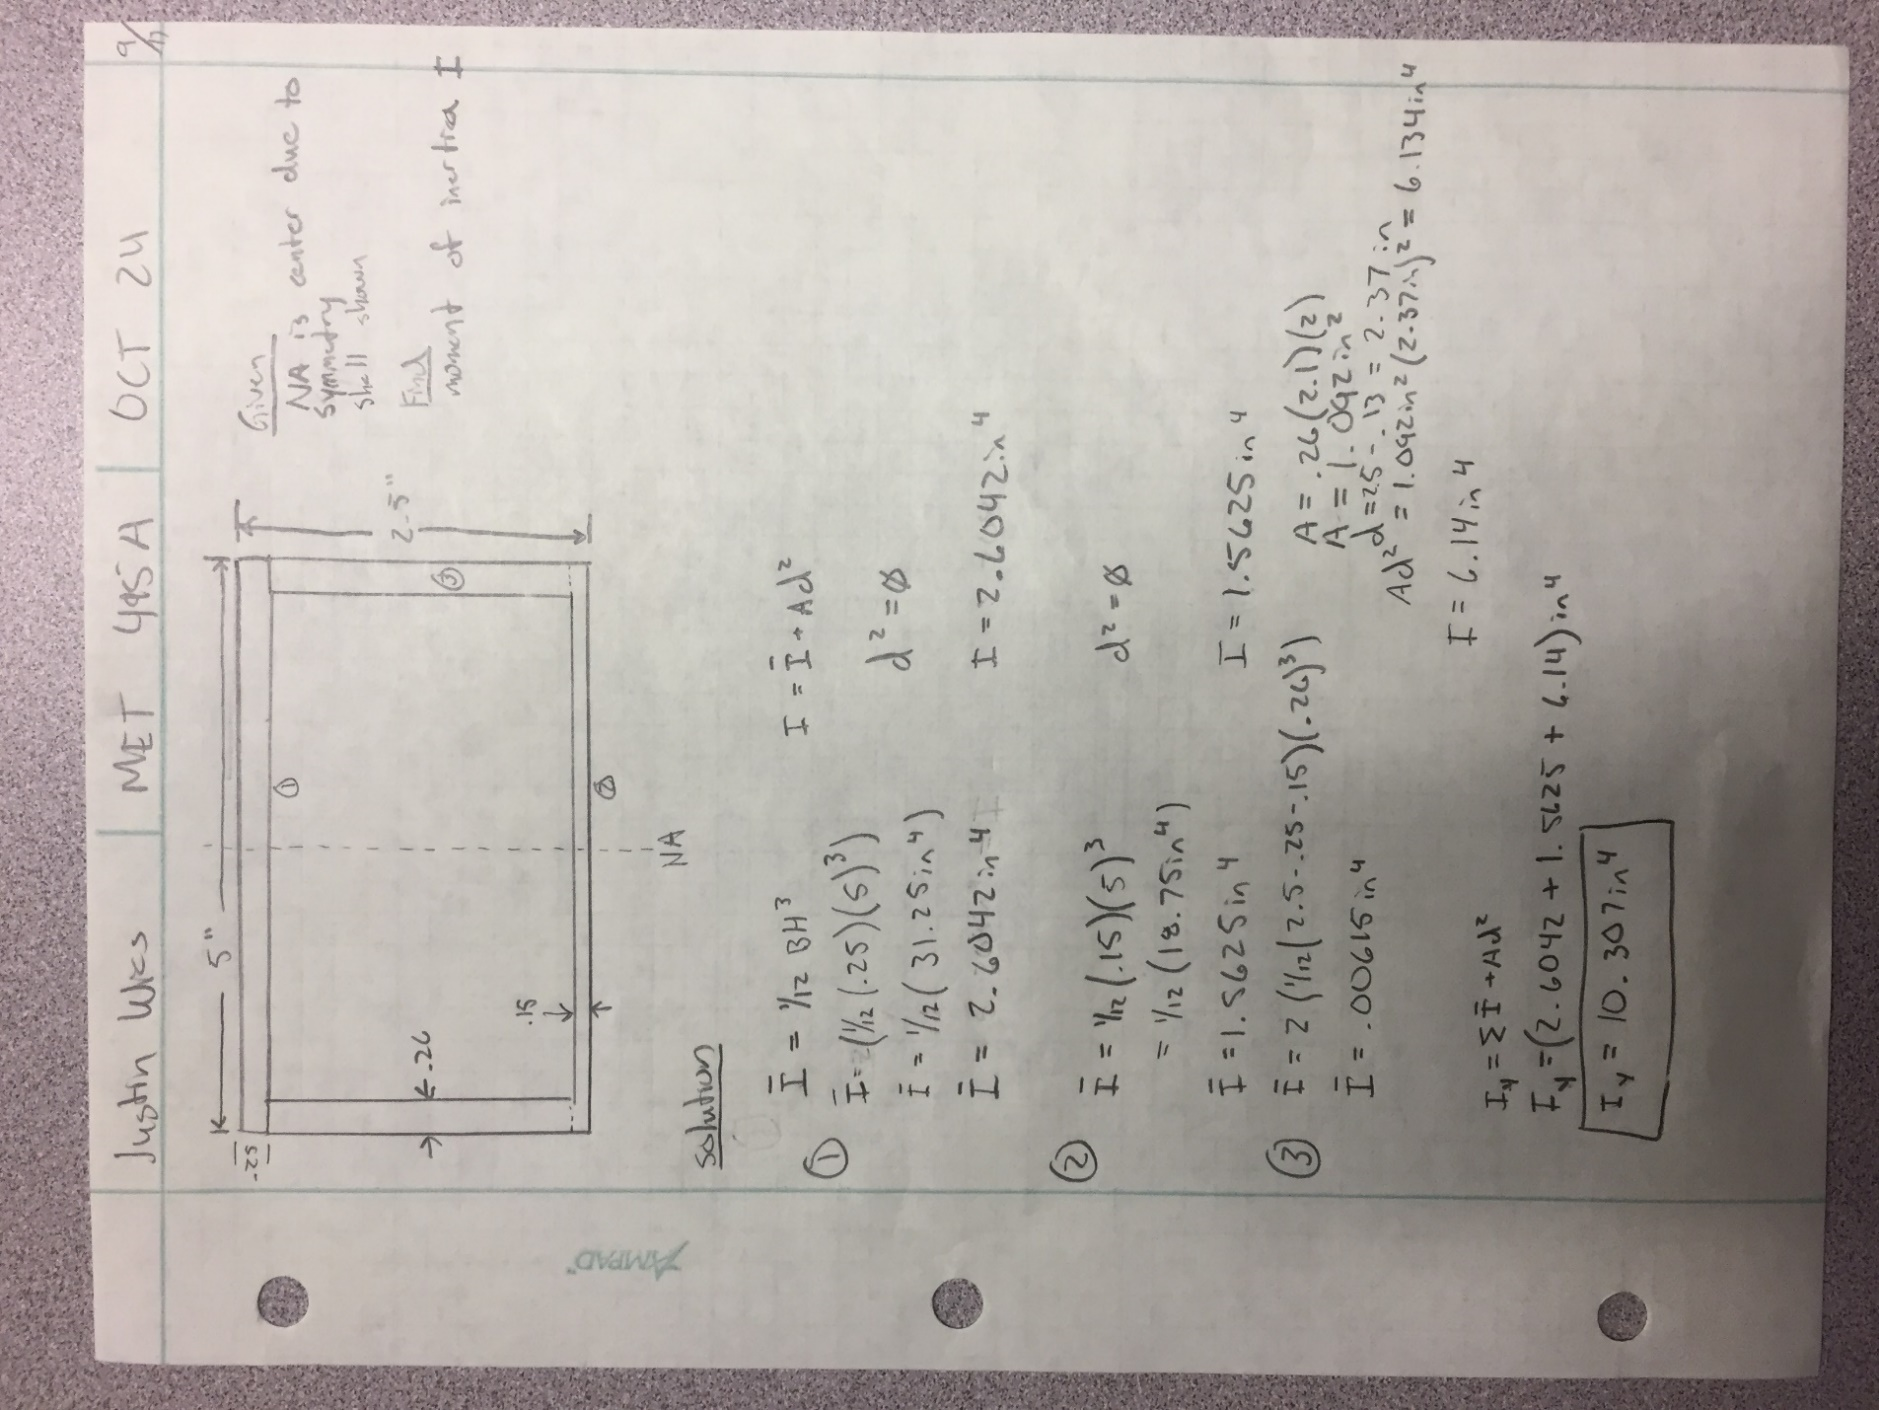 Justin Wies | MET 495A | OCT 24 9/17
5"
.25
.26
.15
2.5"
①
②
③
NA
Given
NA is center due to
symmetry
shell shown
Find
moment of inertia I
Solution
① Ī = 1/12 BH³ I = Ī + Ad²
Ī = (1/12 (.25)(5)³) d² = Ø
Ī = 1/12 (31.25in⁴)
Ī = 2.6042in⁴ I = 2.6042in⁴
② Ī = 1/12 (.15)(5)³ d² = Ø
= 1/12 (18.75in⁴)
Ī = 1.5625in⁴ I = 1.5625in⁴
③ Ī = 2 (1/12 (2.5-.25-.15)(.26)³) A = .26(2.1)(2)
Ī = .00615in⁴ A = 1.092in²
d = 2.5 - .13 = 2.37in
Ad² = 1.092in² (2.37in)² = 6.134in⁴
I = 6.14in⁴
Iy = Σ Ī + Ad²
Iy = (2.6042 + 1.5625 + 6.14)in⁴
Iy = 10.307in⁴
AMPAD